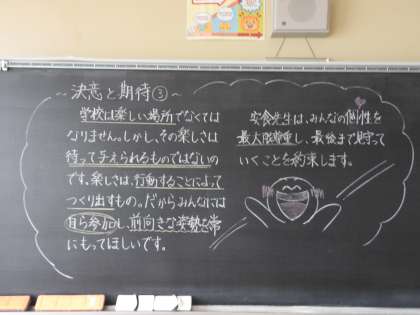 ~決意と期待③~
学校は楽しい場所でなくては
なりません。しかし、その楽しさは
待って与えられるものではないの
です。楽しさは、行動することによって
つくり出すもの。だからみんなには
自ら参加し、前向きな姿勢を常
にもってほしいです。
先生は、みんなの個性を
最大限尊重し、最後まで見守って
いくことを約束します。